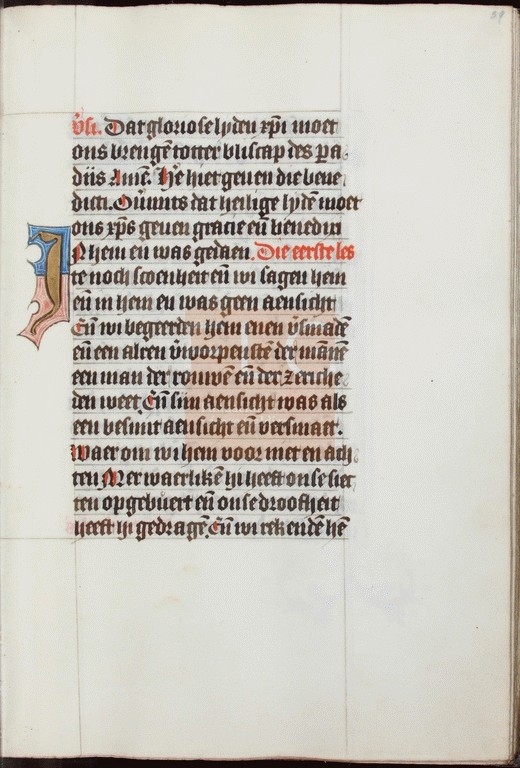 59
v̄si. Dat gloriose lyden xp̄i moet
ons brengē totter bliscap des pa-
diis Amē. He hiet geuen die bene
dicti. O uunts dat heilige lydē moet
ons xp̄s geuen gracie eñ benedixi
IN hem en was gedaen. Die eerste les
te noch scoenheit eñ wi sagen hem
eñ in hem en was geen aensicht
Eñ wi begeerden hem enen v̄smadē
eñ een alren v̄worpenstē der mānē
een man der rouwē eñ der zeriche
den weet. Eñ sijn aensicht was als
een besmit aensicht eñ versmaet.
Waer om wi hem voor niet en ach
ten Mer waerlikē hi heeft onse siec
ten op gebuert eñ onse droefheit
heeft hi gedragē. Eñ wi rekendē hē